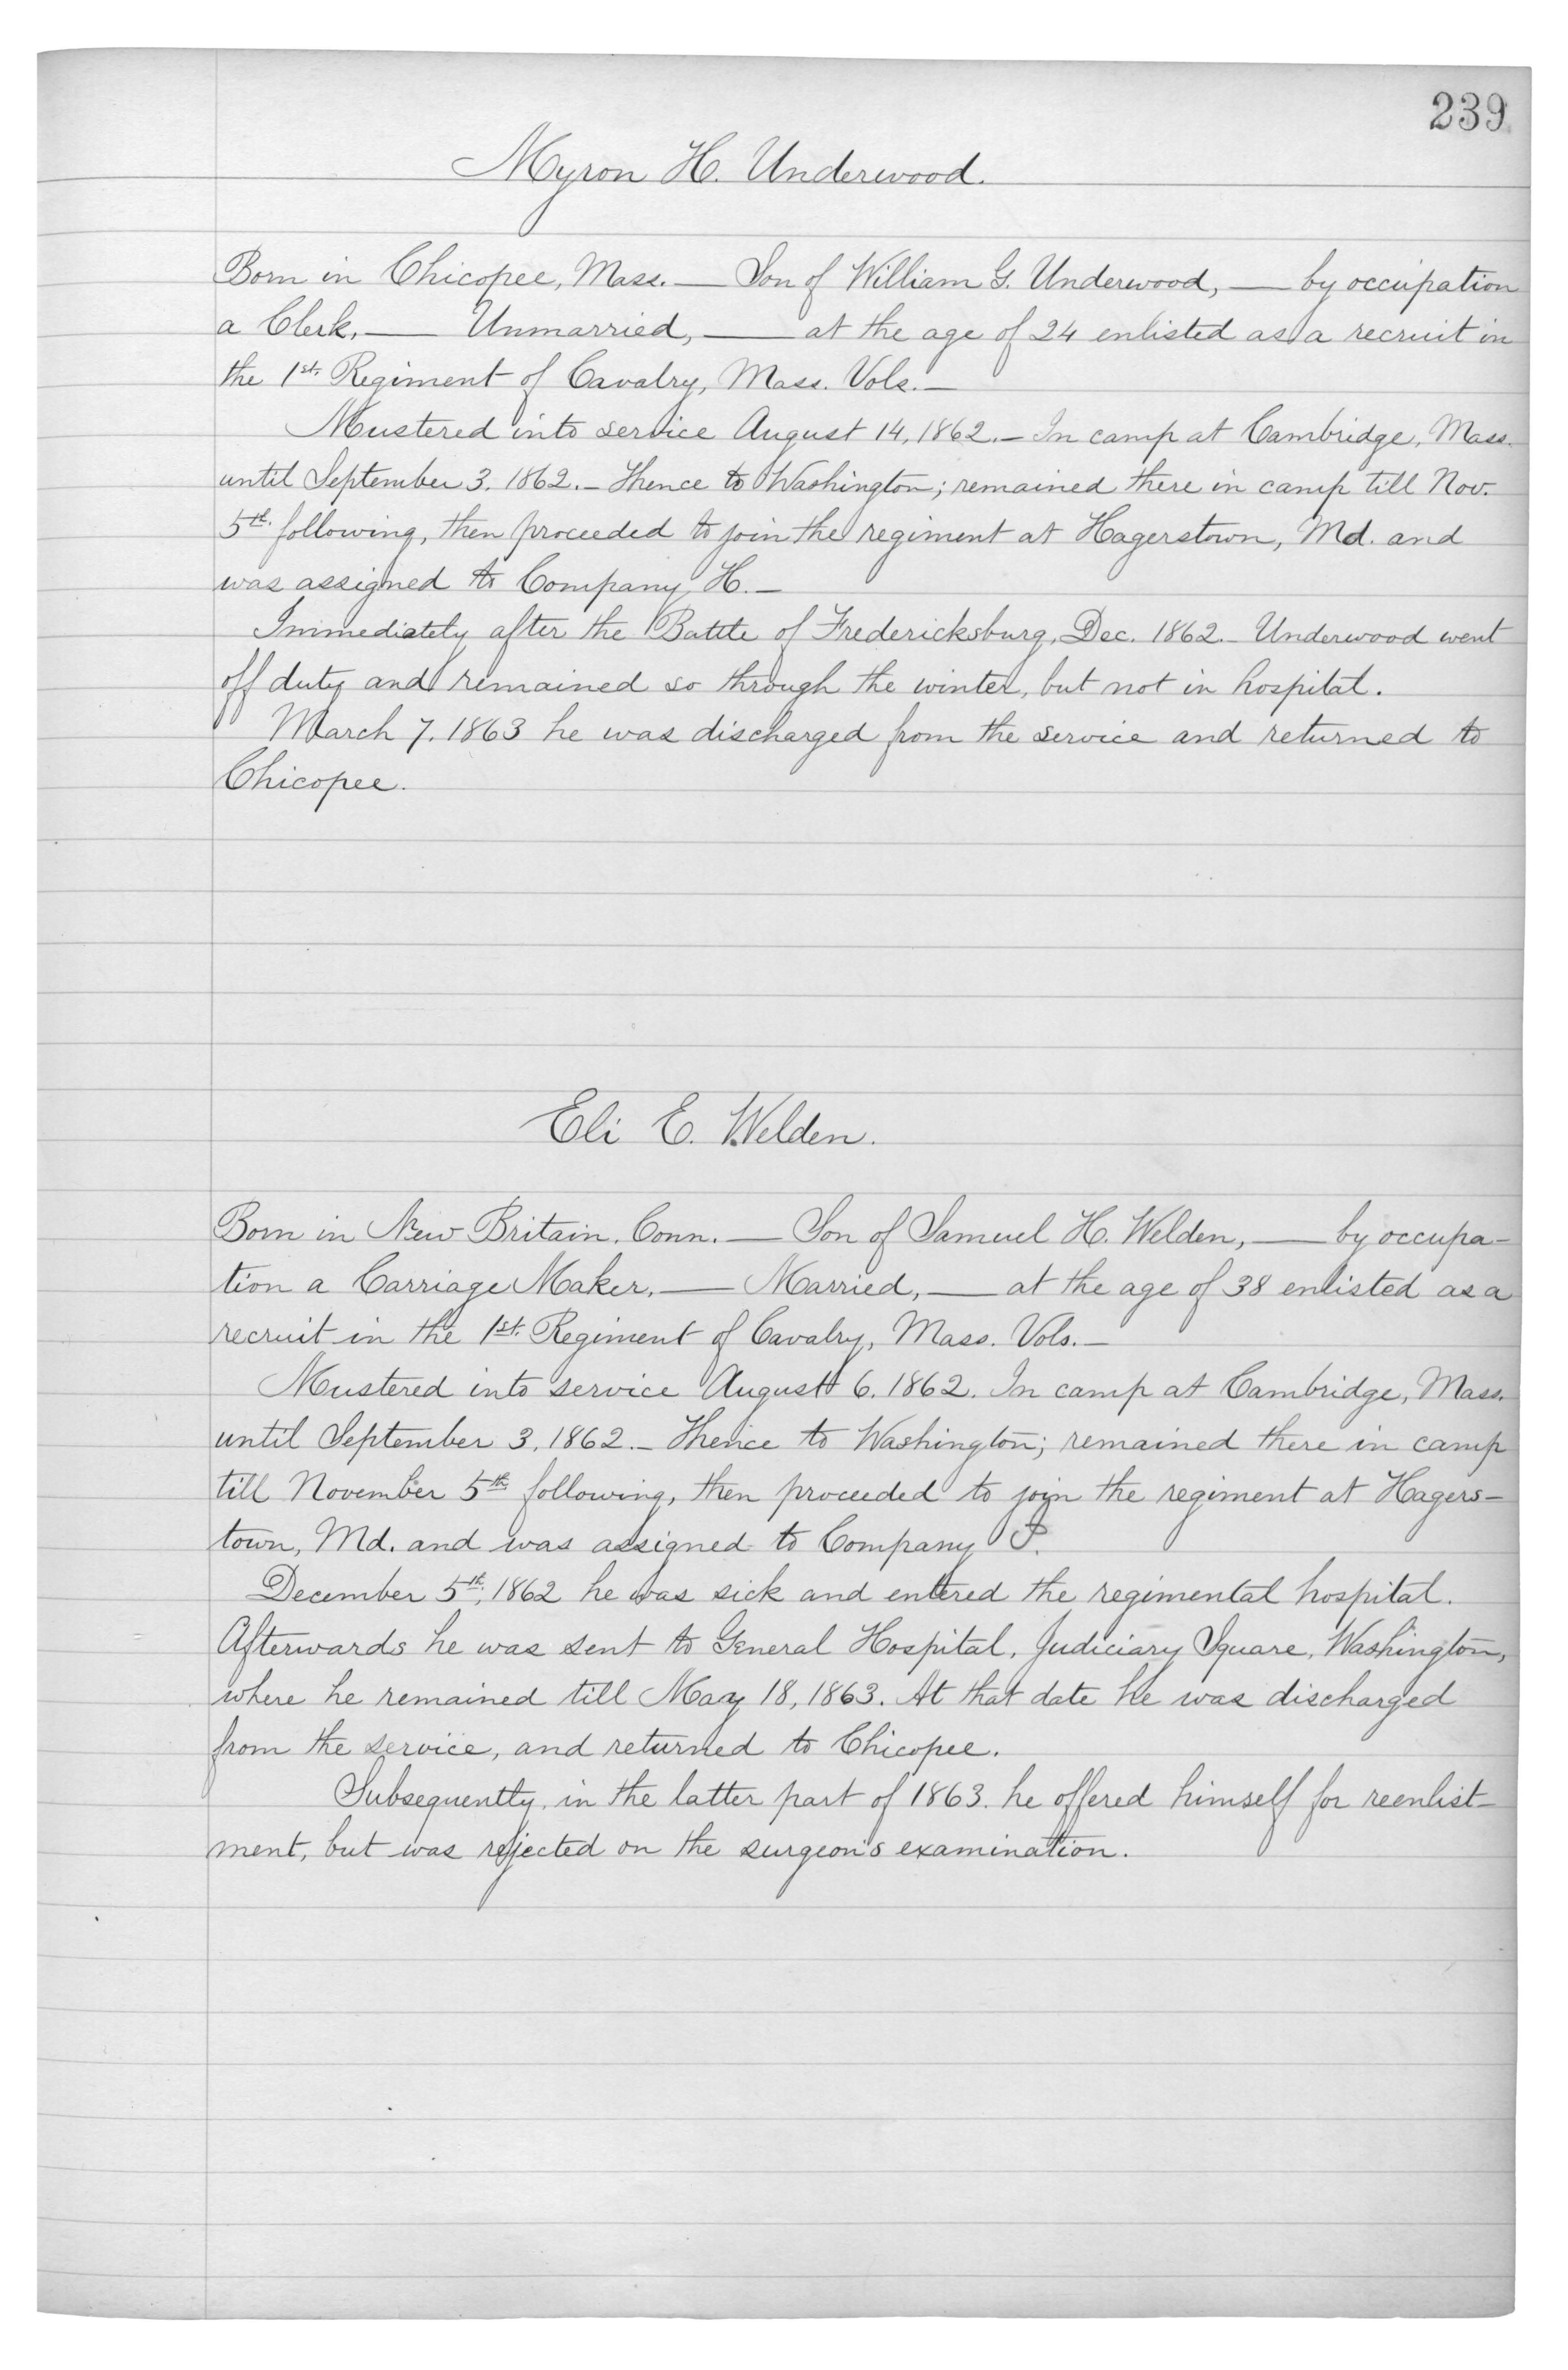 239
Myron H. Underwood.
Born in Chicopee, Mass. — Son of William G. Underwood, — by occupation
a Clerk, — Unmarried, — at the age of 24 enlisted as a recruit in
the 1st. Regiment of Cavalry, Mass. Vols. —
Mustered into service August 14, 1862. — In camp at Cambridge, Mass.
until September 3. 1862. — Thence to Washington; remained there in camp till Nov.
5th. following, then proceeded to join the regiment at Hagerstown, Md. and
was assigned to Company H. —
Immediately after the Battle of Fredericksburg, Dec. 1862. — Underwood went
off duty and remained so through the winter, but not in hospital.
March 7. 1863 he was discharged from the service and returned to
Chicopee.
Eli E. Welden.
Born in New Britain. Conn. — Son of Samuel H. Welden, — by occupa-
tion a Carriage Maker, — Married, — at the age of 38 enlisted as a
recruit in the 1st. Regiment of Cavalry, Mass. Vols. —
Mustered into service August 6. 1862. In camp at Cambridge, Mass.
until September 3, 1862. — Thence to Washington; remained there in camp
till November 5th following, then proceeded to join the regiment at Hagers-
town, Md. and was assigned to Company
December 5th, 1862 he was sick and entered the regimental hospital.
Afterwards he was sent to General Hospital, Judiciary Square, Washington,
where he remained till May 18, 1863. At that date he was discharged
from the service, and returned to Chicopee.
Subsequently, in the latter part of 1863. he offered himself for reenlist-
ment, but was rejected on the surgeon's examination.